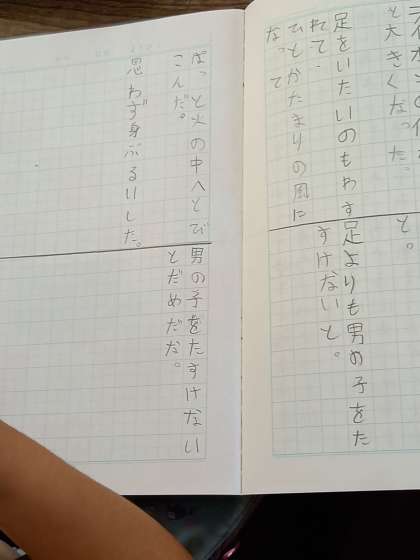 と大きくなった。
足をいたいのもわす
れて、
ひとかたまりの風に
なって
と。
足よりも男の子をた
すけないと。
ぱっと火の中へとび
こんだ。
思わず身ぶるいした。
男の子をたすけない
とだめだだ。